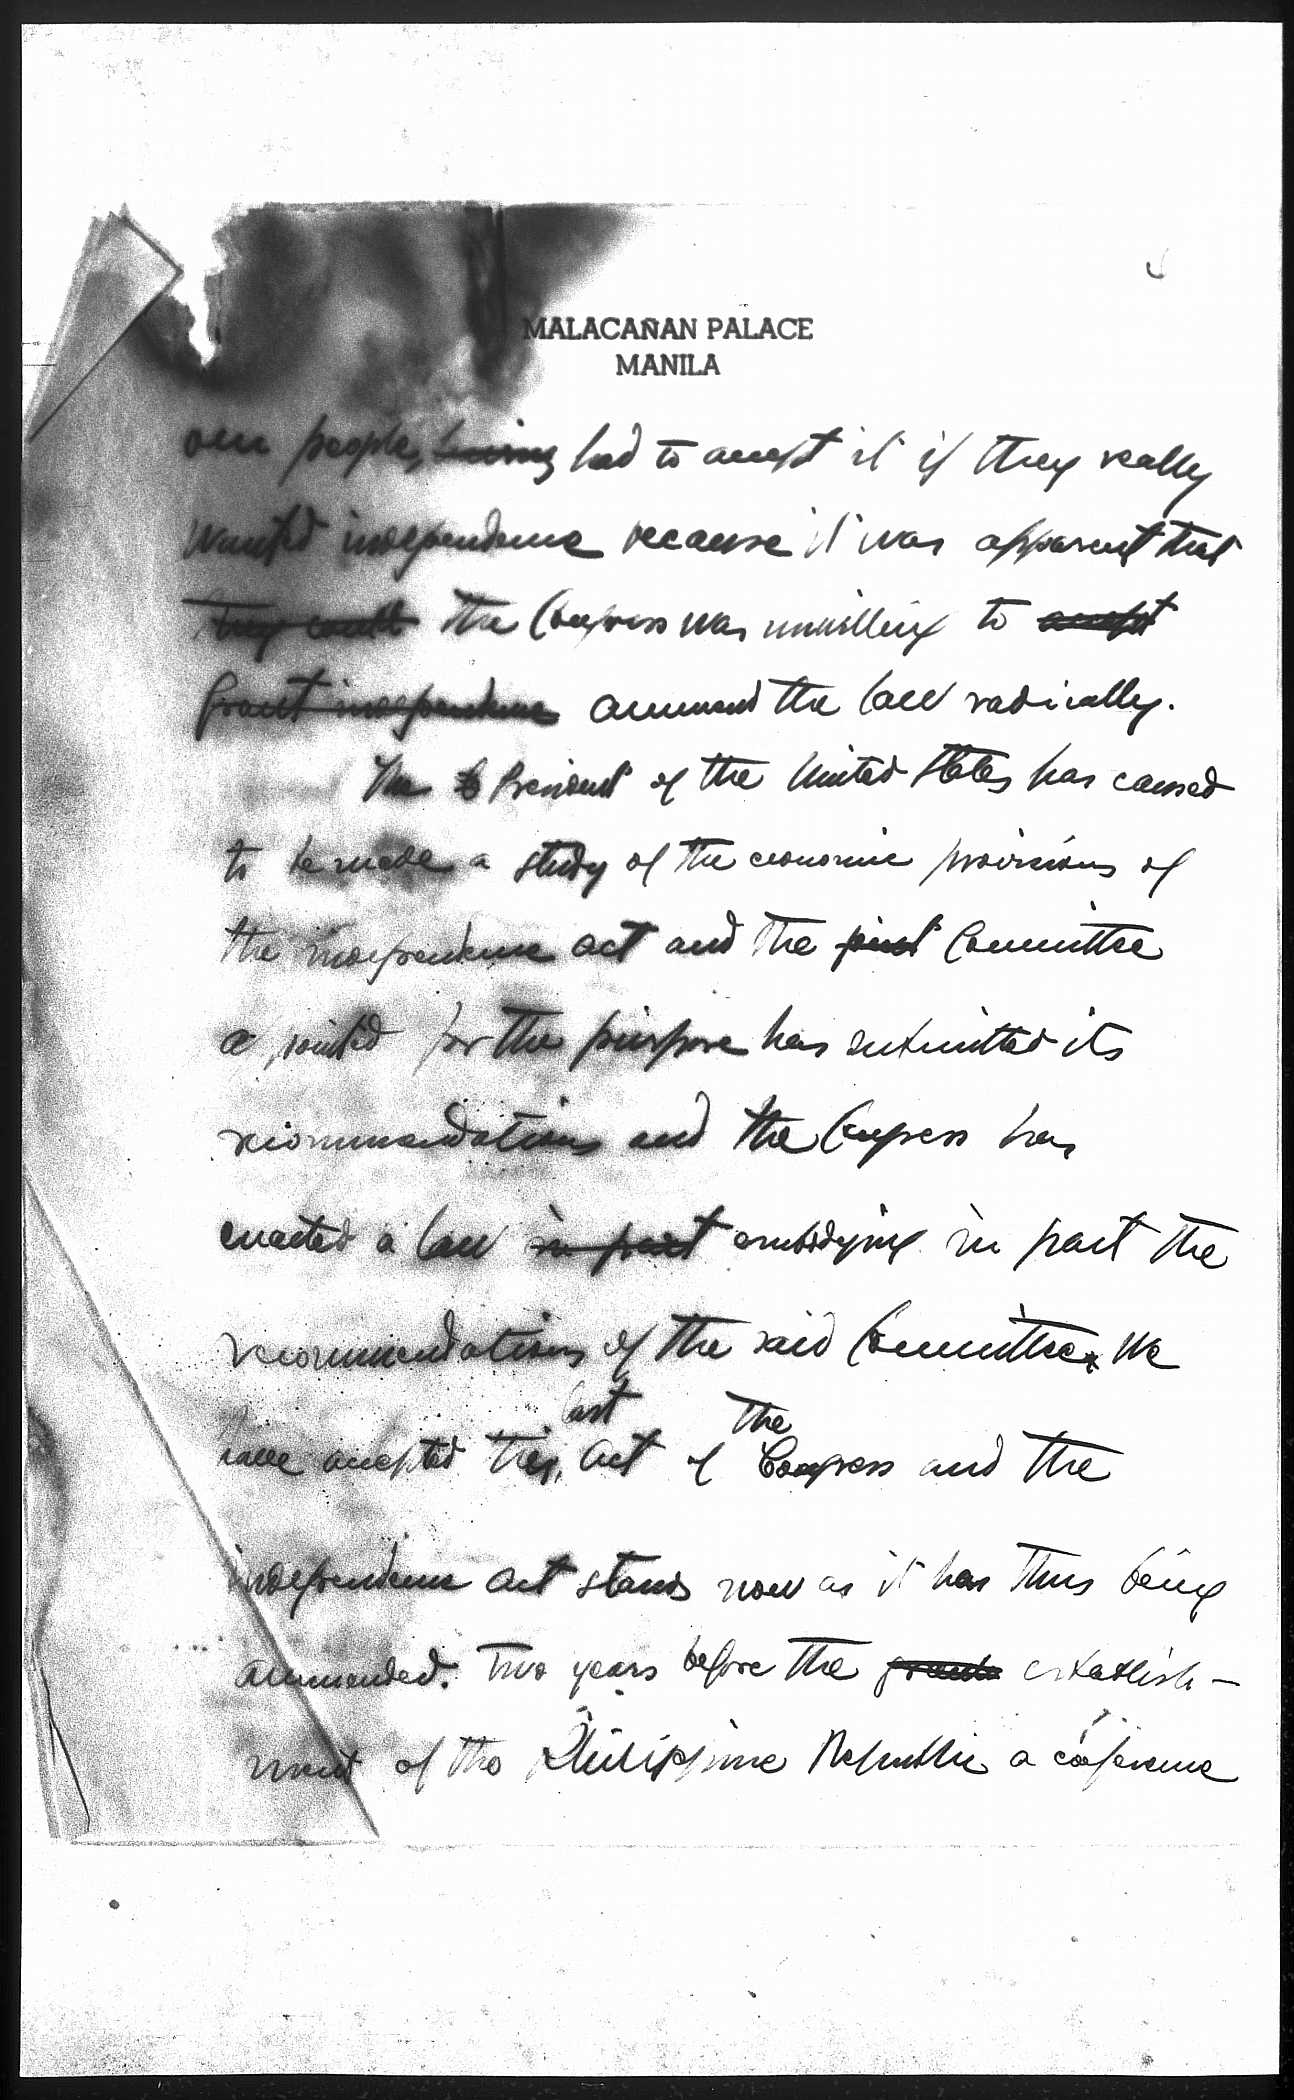 MALACAÑAN PALACE
MANILA
our people, having had to accept it if they really
wanted independence because it was apparent that
they could the Congress was unwilling to accept
grant independence ammend the law radically.
The President of the United States has caused
to be made a study of the economic provisions of
the independence act and the joint Committee
a pointed for the purpose has submitted its
recommendations and the Congress has
enacted a law in part embodying in part the
recommendations of the said Committee. We
last the
have accepted this act of Congress and the
independence act stands now as it has thus being
ammended. Two years before the establish-
ment of the Philippine Republic a conference